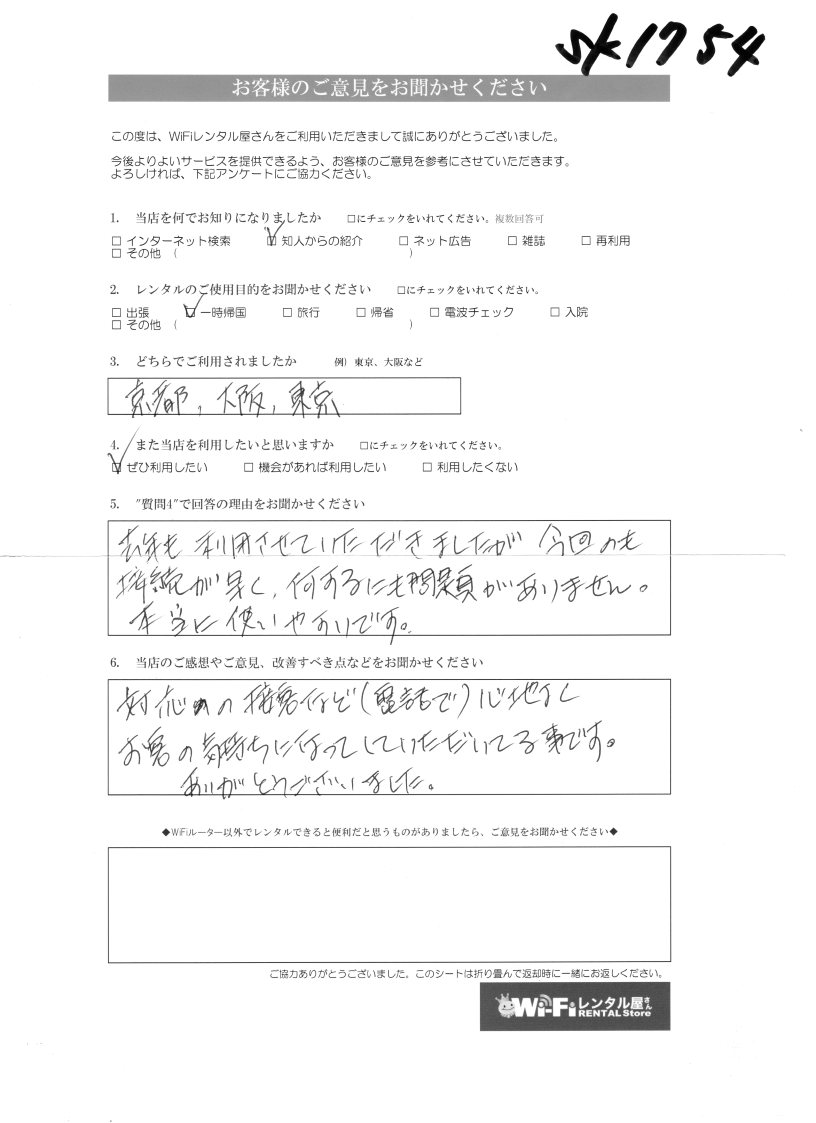 sk1754
お客様のご意見をお聞かせください
この度は、WiFiレンタル屋さんをご利用いただきまして誠にありがとうございました。
今後よりよいサービスを提供できるよう、お客様のご意見を参考にさせていただきます。
よろしければ、下記アンケートにご協力ください。
1. 当店を何でお知りになりましたか □にチェックをいれてください。複数回答可
□ インターネット検索 ☑ 知人からの紹介 □ ネット広告 □ 雑誌 □ 再利用
□ その他 ( )
2. レンタルのご使用目的をお聞かせください □にチェックをいれてください。
□ 出張 ☑ 一時帰国 □ 旅行 □ 帰省 □ 電波チェック □ 入院
□ その他 ( )
3. どちらでご利用されましたか 例) 東京、大阪など
京都, 大阪, 東京
4. また当店を利用したいと思いますか □にチェックをいれてください。
☑ ぜひ利用したい □ 機会があれば利用したい □ 利用したくない
5. "質問4"で回答の理由をお聞かせください
去年も利用させていただきましたが 今回のも
接続が早く、何するにも問題がありません。
本当に使いやすいです。
6. 当店のご感想やご意見、改善すべき点などをお聞かせください
対応の接客など(電話で)心地よく
お客の気持ちになってしていただいてる事です。
ありがとうございました。
◆WiFiルーター以外でレンタルできると便利だと思うものがありましたら、ご意見をお聞かせください◆
ご協力ありがとうございました。このシートは折り畳んで返却時に一緒にお返しください。
Wi-Fiレンタル屋さん
RENTAL Store